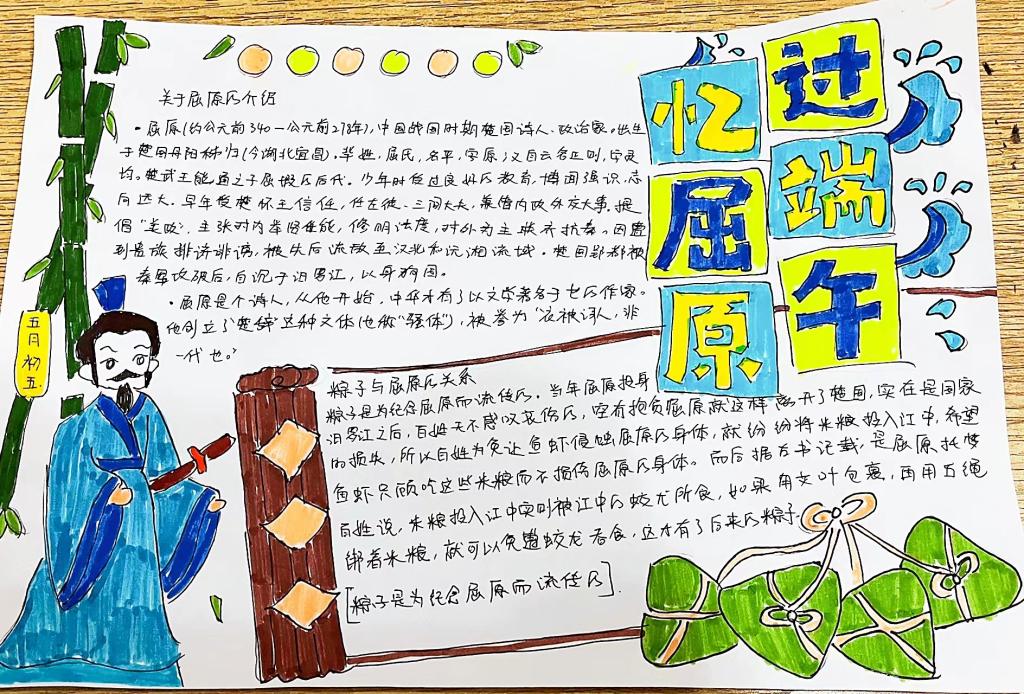 过端午
忆屈原
五月初五
关于屈原的介绍
·屈原(约公元前340一公元前278年),中国战国时期楚国诗人、政治家。出生
于楚国丹阳秭归(今湖北宜昌)。芈姓,屈氏,名平,字原;又自云名正则,字灵
均。楚武王熊通之子屈瑕的后代。少年时受过良好的教育,博闻强识,志
向远大。早年受楚怀王信任,任左徒、三闾大夫,兼管内政外交大事。提
倡"美政",主张对内举贤任能,修明法度,对外力主联齐抗秦。因遭
到贵族排挤诽谤,被先后流放至汉北和沅湘流域。楚国郢都被
秦军攻破后,自沉于汨罗江,以身殉国。
·屈原是个诗人,从他开始,中华才有了以文学著名于世的作家。
他创立了"楚辞"这种文体(也称"骚体"),被誉为"衣被词人,非
一代也。"
粽子与屈原的关系
粽子是为纪念屈原而流传的。当年屈原投身
汨罗江之后,百姓无不感叹哀伤的,空有抱负屈原就这样离开了楚国,实在是国家
的损失,所以百姓为免让鱼虾侵蚀屈原的身体,就纷纷将米粮投入江中,希望
鱼虾只顾吃这些米粮而不损伤屈原的身体。而后据古书记载,是屈原托梦
百姓说,米粮投入江中实则被江中的蛟龙所食,如果用艾叶包裹,再用五绳
绑着米粮,就可以免遭蛟龙吞食,这才有了后来的粽子.
[粽子是为纪念屈原而流传的].